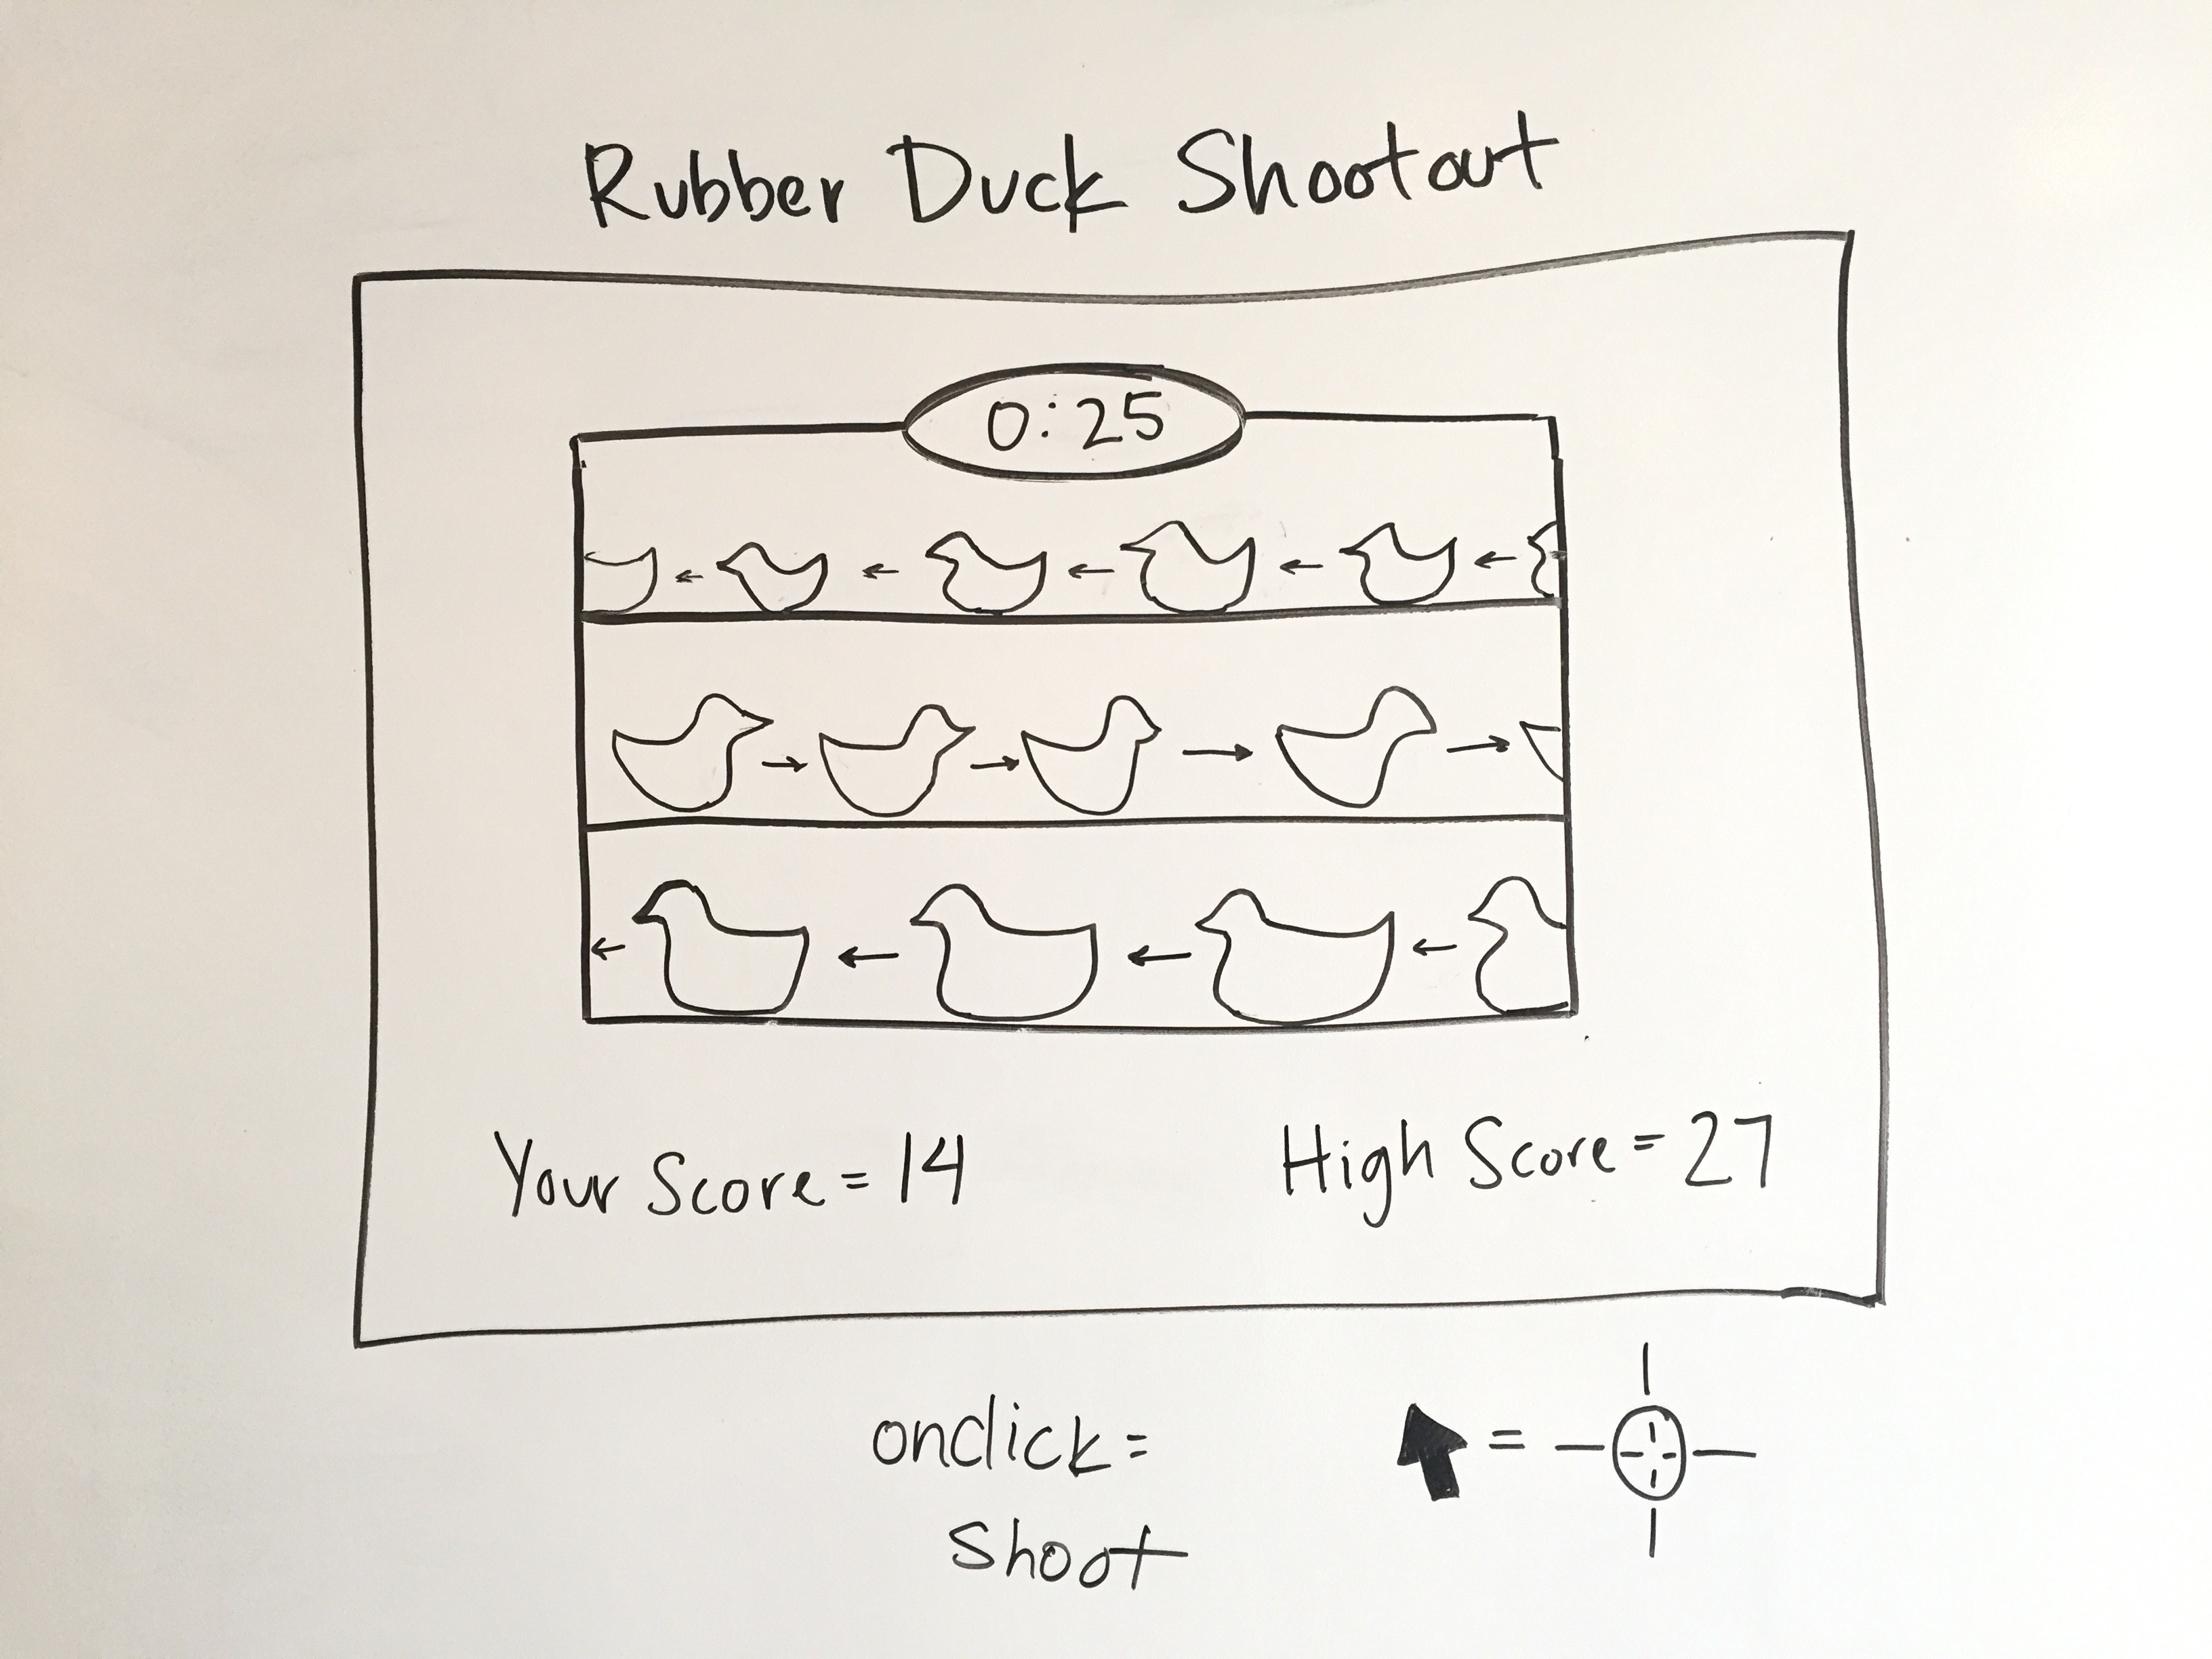 Rubber Duck Shootout
0:25
Your Score = 14
High Score = 27
onclick =
shoot
=